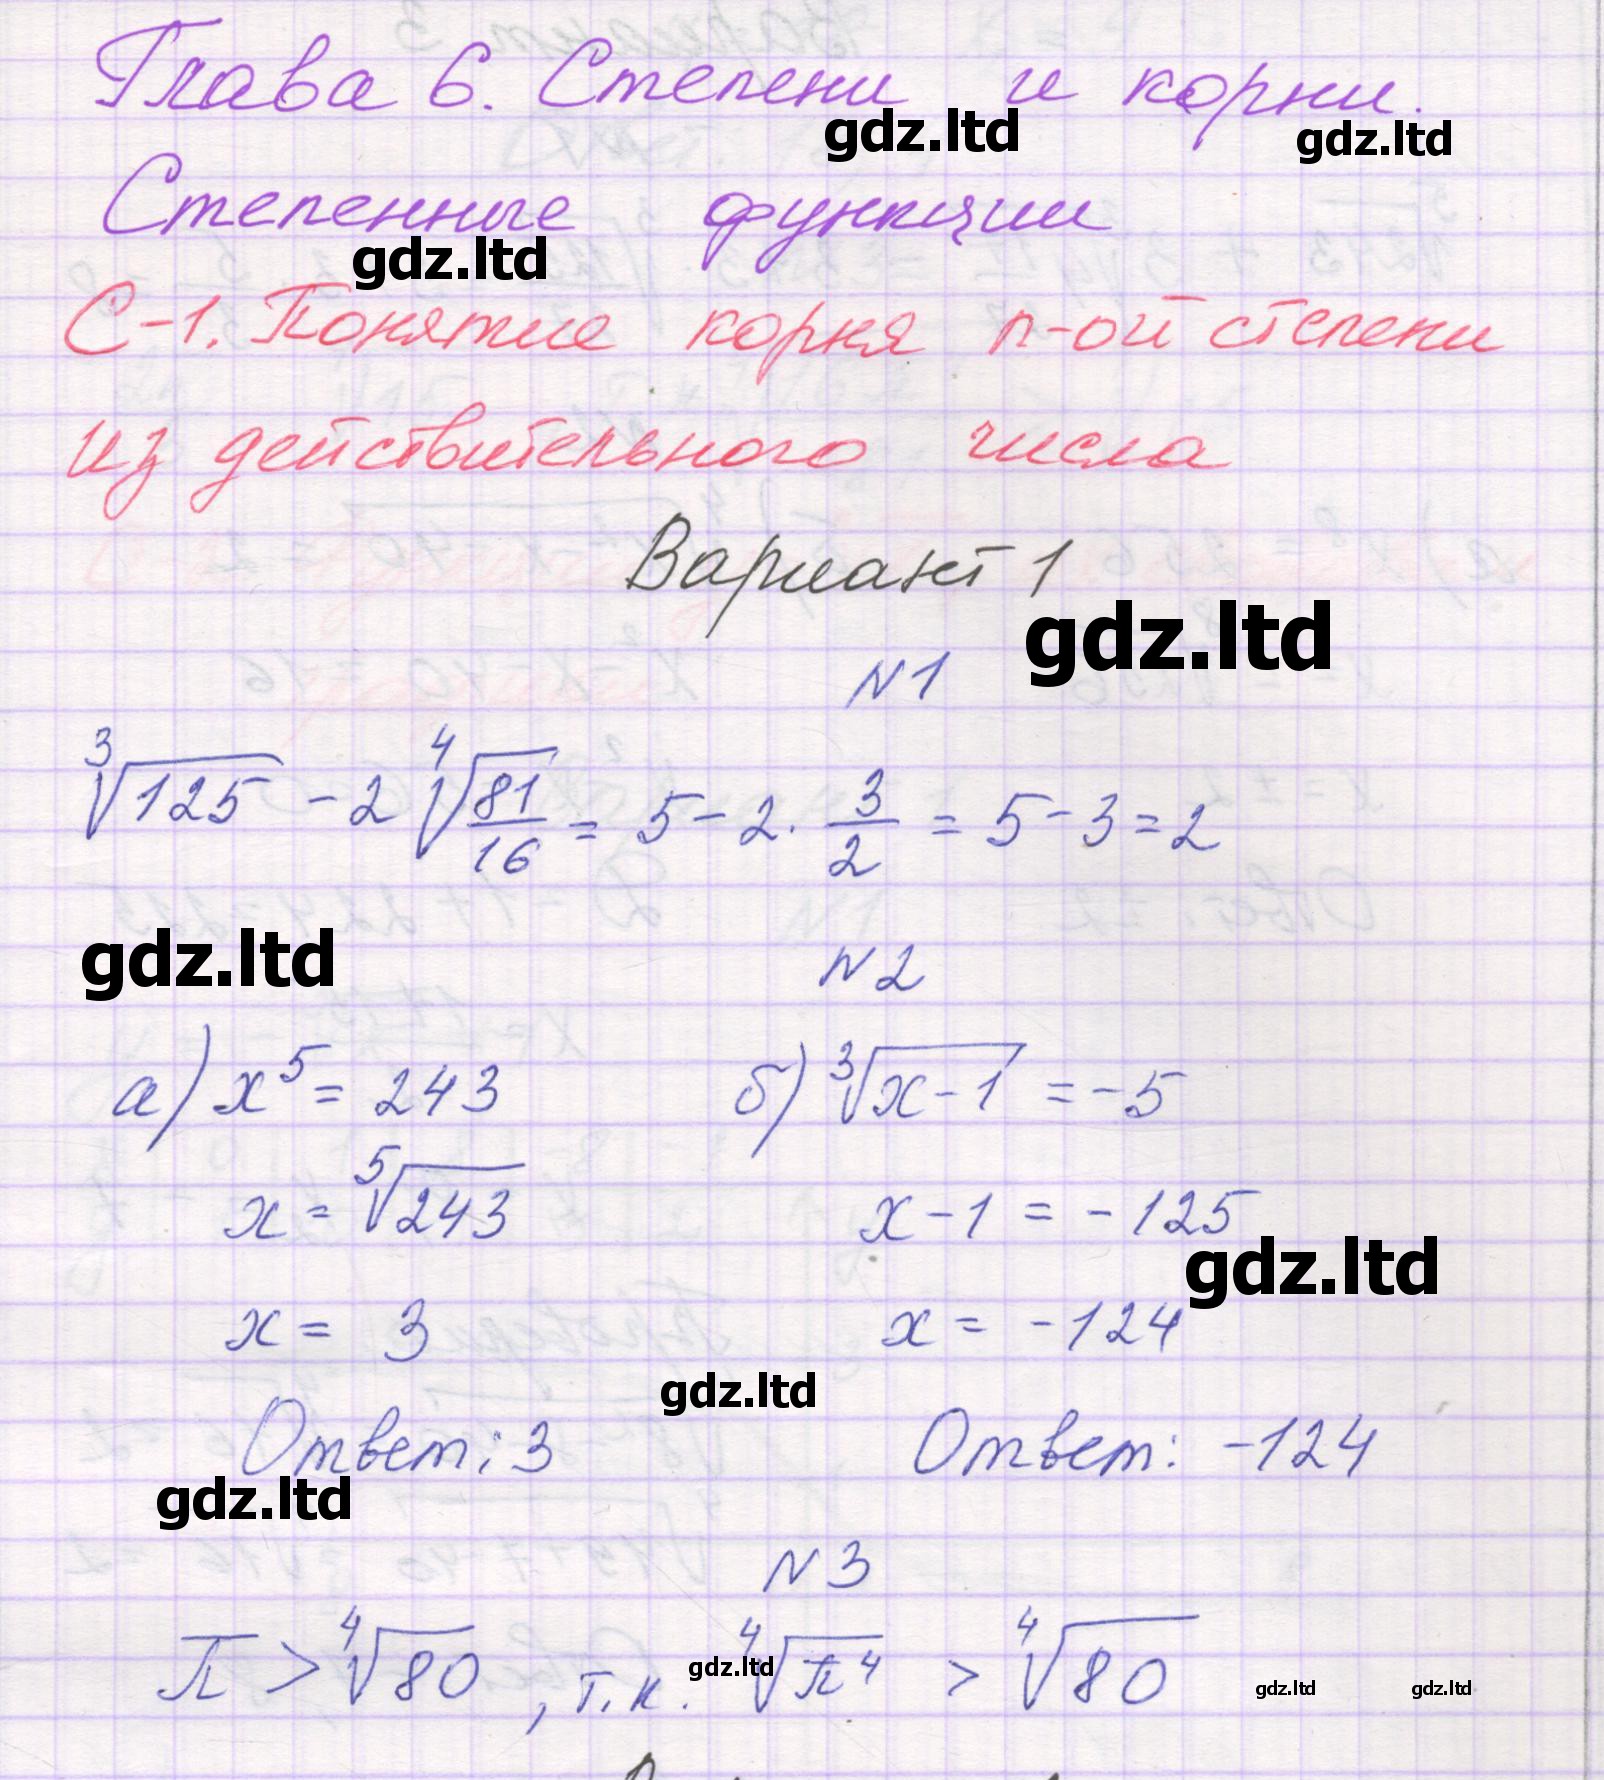 Глава 6. Степени и корни.
gdz.ltd gdz.ltd
Степенные функции
gdz.ltd
С-1. Понятие корня n-ой степени
из действительного числа
Вариант 1
gdz.ltd
N1
∛125 - 2 ∜(81/16) = 5 - 2 · 3/2 = 5 - 3 = 2
gdz.ltd
N2
а) x⁵ = 243 б) ∛(x-1) = -5
x = ⁵√243 x - 1 = -125
gdz.ltd
x = 3 x = -124
gdz.ltd
Ответ: 3 Ответ: -124
gdz.ltd
N3
π > ∜80, т.к. ∜π⁴ > ∜80
gdz.ltd gdz.ltd gdz.ltd